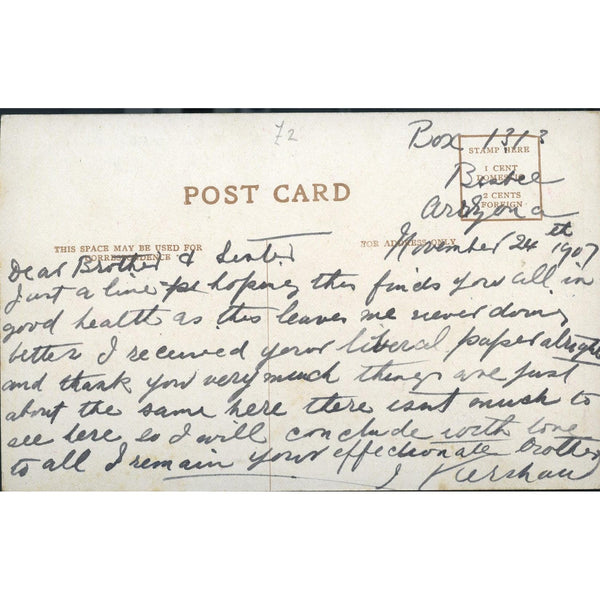 72
Box 1313
STAMP HERE
1 CENT
DOMESTIC
2 CENTS
FOREIGN
Bisbee
Arizona
POST CARD
THIS SPACE MAY BE USED FOR
CORRESPONDENCE
FOR ADDRESS ONLY
November 24th 1907
Dear Brother & Sister
Just a line hoping this finds you all in
good health as this leaves me never doing
better I received your liberal paper alright
and thank you very much things are just
about the same here there isnt much to
see here, so I will conclude with love
to all I remain your effectionate brother
J Kershaw